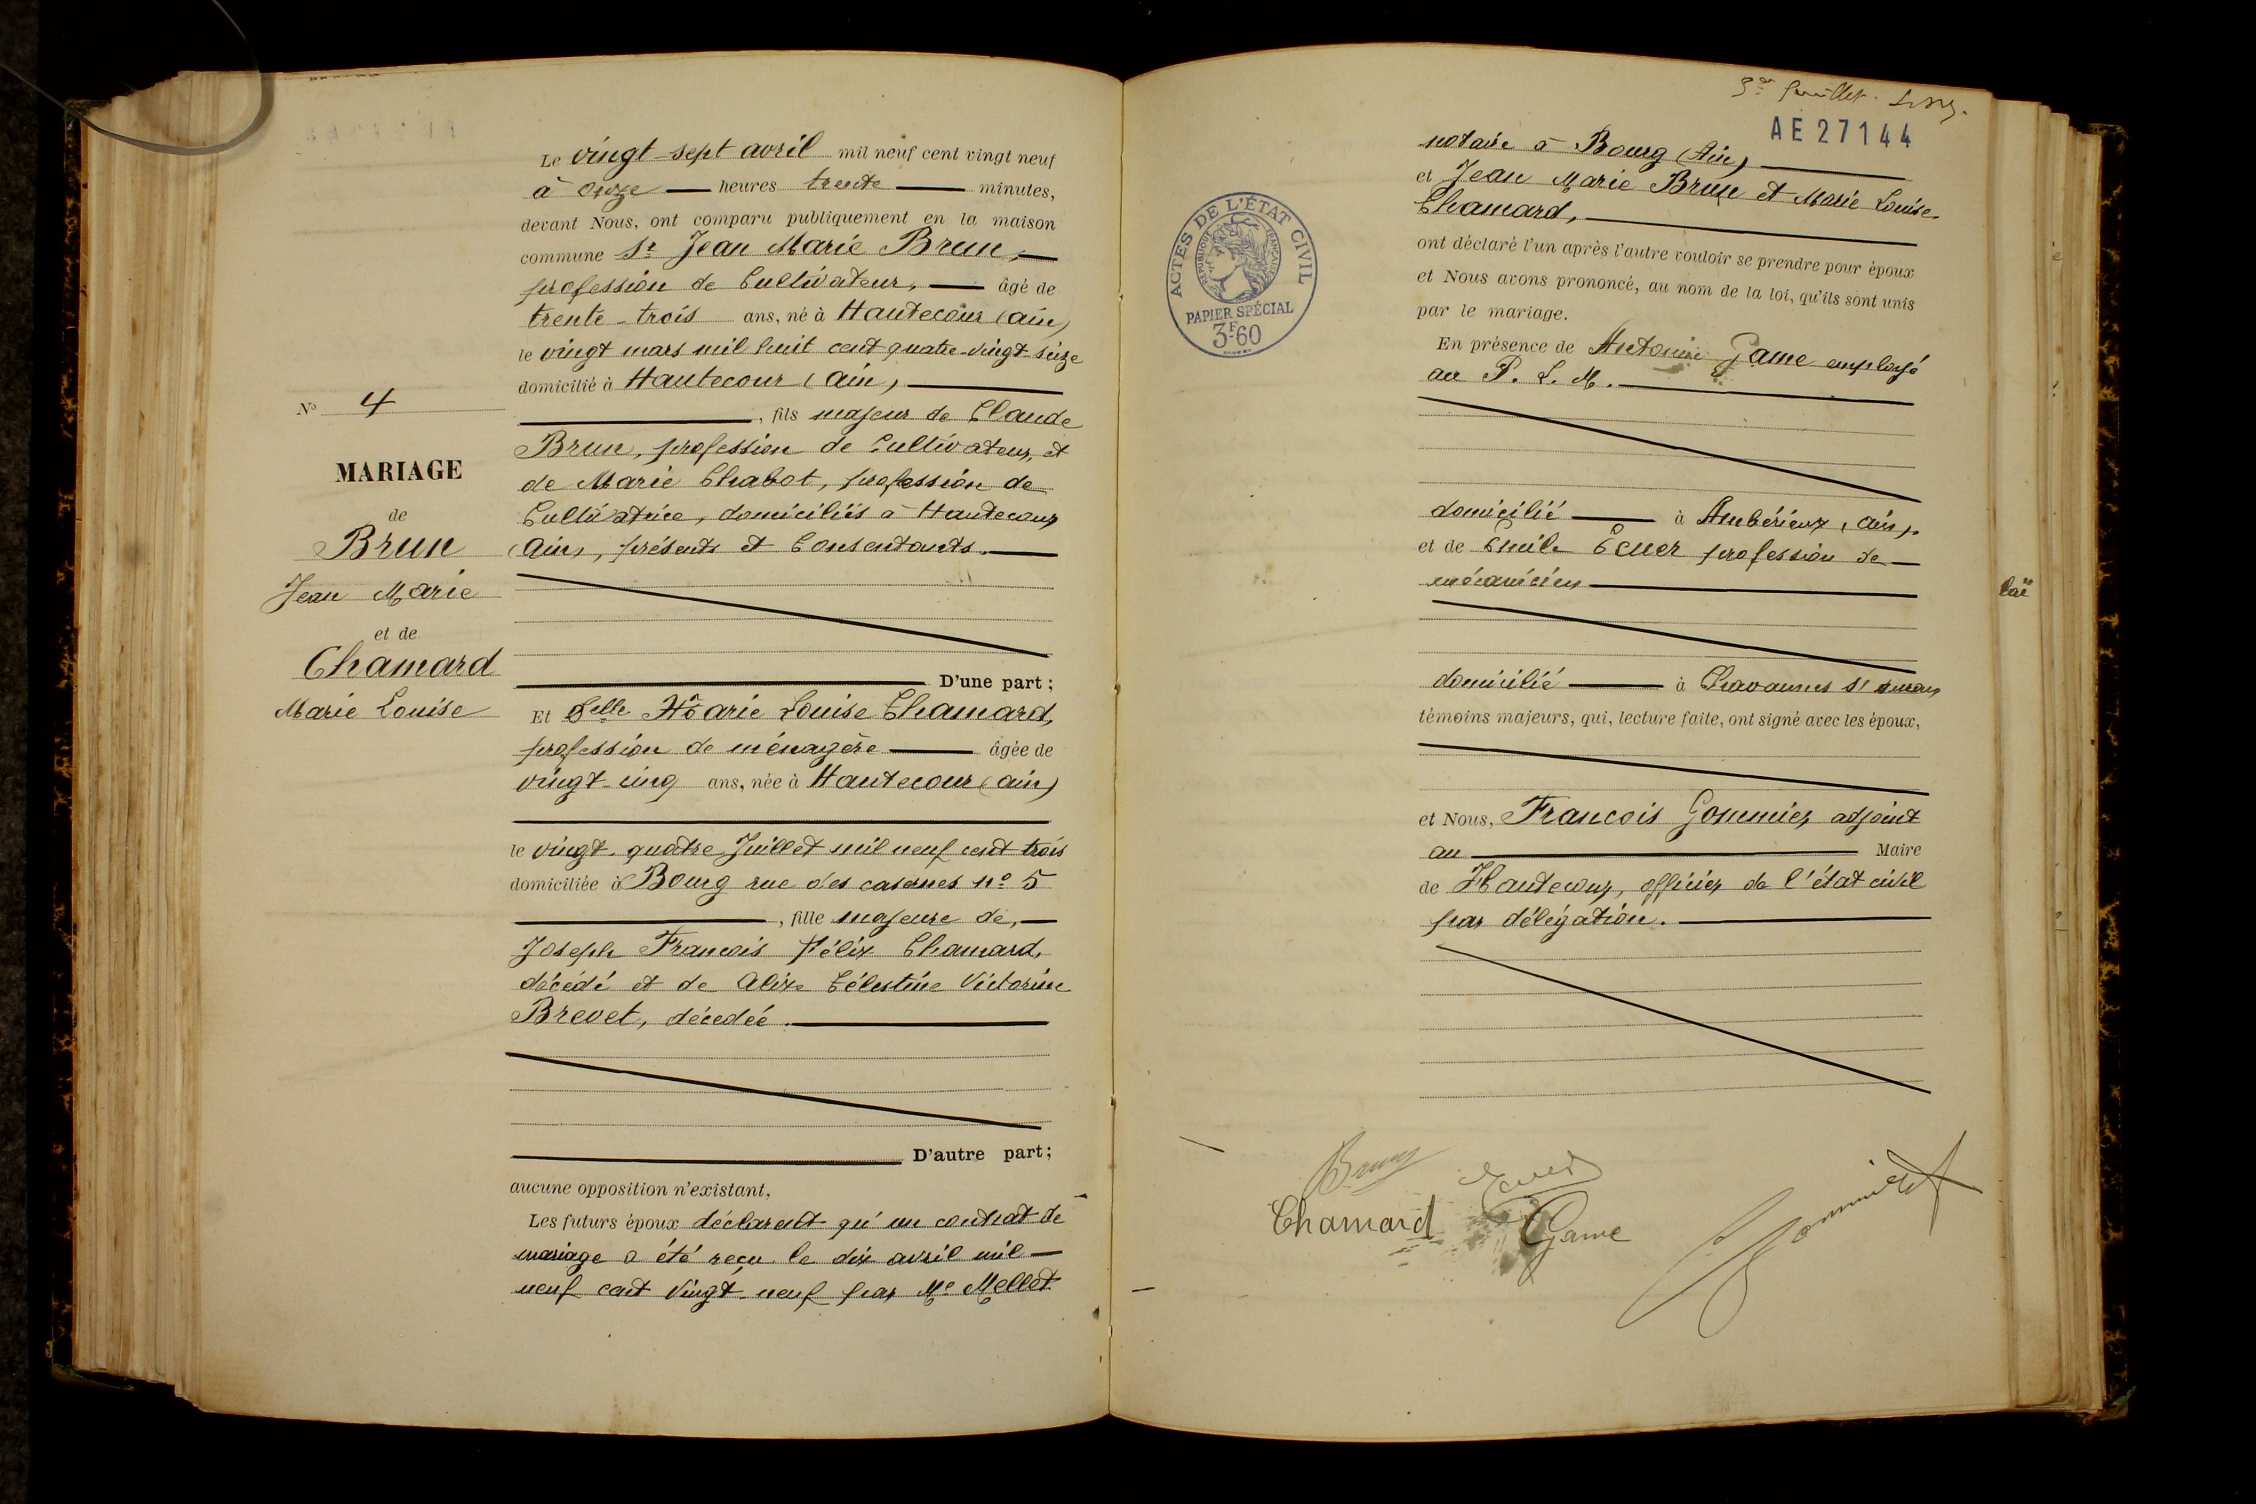 Le vingt-sept avril mil neuf cent vingt neuf
à onze heures trente minutes,
devant Nous, ont comparu publiquement en la maison
commune Sr Jean Marie Brun,
profession de Cultivateur, âgé de
trente-trois ans, né à Hautecour (Ain)
le vingt mars mil huit cent quatre-vingt-seize
domicilié à Hautecour (Ain),
, fils majeur de Claude
Brun, profession de Cultivateur, et
de Marie Chabot, profession de
Cultivatrice, domiciliés à Hautecour
(Ain), présents et Consentants.
D'une part ;
N° 4
MARIAGE
de
Brun
Jean Marie
et de
Chamard
Marie Louise
Et Delle Marie Louise Chamard,
profession de ménagère âgée de
vingt-cinq ans, née à Hautecour (Ain)
le vingt-quatre Juillet mil neuf cent trois
domiciliée à Bourg rue des casernes n° 5
, fille majeure de,
Joseph Francois Félix Chamard,
décédé et de Alix Célestine Victorine
Brevet, décedeé.
D'autre part ;
aucune opposition n'existant,
Les futurs époux déclarent qu'un contrat de
mariage a été reçu le dix avril mil
neuf cent vingt-neuf par Me Mellet
3e feuillet.
AE 27144
notaire à Bourg (Ain)
et Jean Marie Brun et Marie Louise
Chamard,
ACTES DE L'ÉTAT CIVIL
RÉPUBLIQUE FRANÇAISE
PAPIER SPÉCIAL
3F60
ont déclaré l'un après l'autre vouloir se prendre pour époux
et Nous avons prononcé, au nom de la loi, qu'ils sont unis
par le mariage.
En présence de Antoine Game employé
au P. L. M.
domicilié à Ambérieux (Ain),
et de Emile Ecuer profession de
mécanicien
domicilié à Chavannes St
témoins majeurs, qui, lecture faite, ont signé avec les époux,
et Nous, Francois Gommier, adjoint
au Maire
de Hautecour, officier de l'état civil
par délégation.
Brun
Chamard
Game